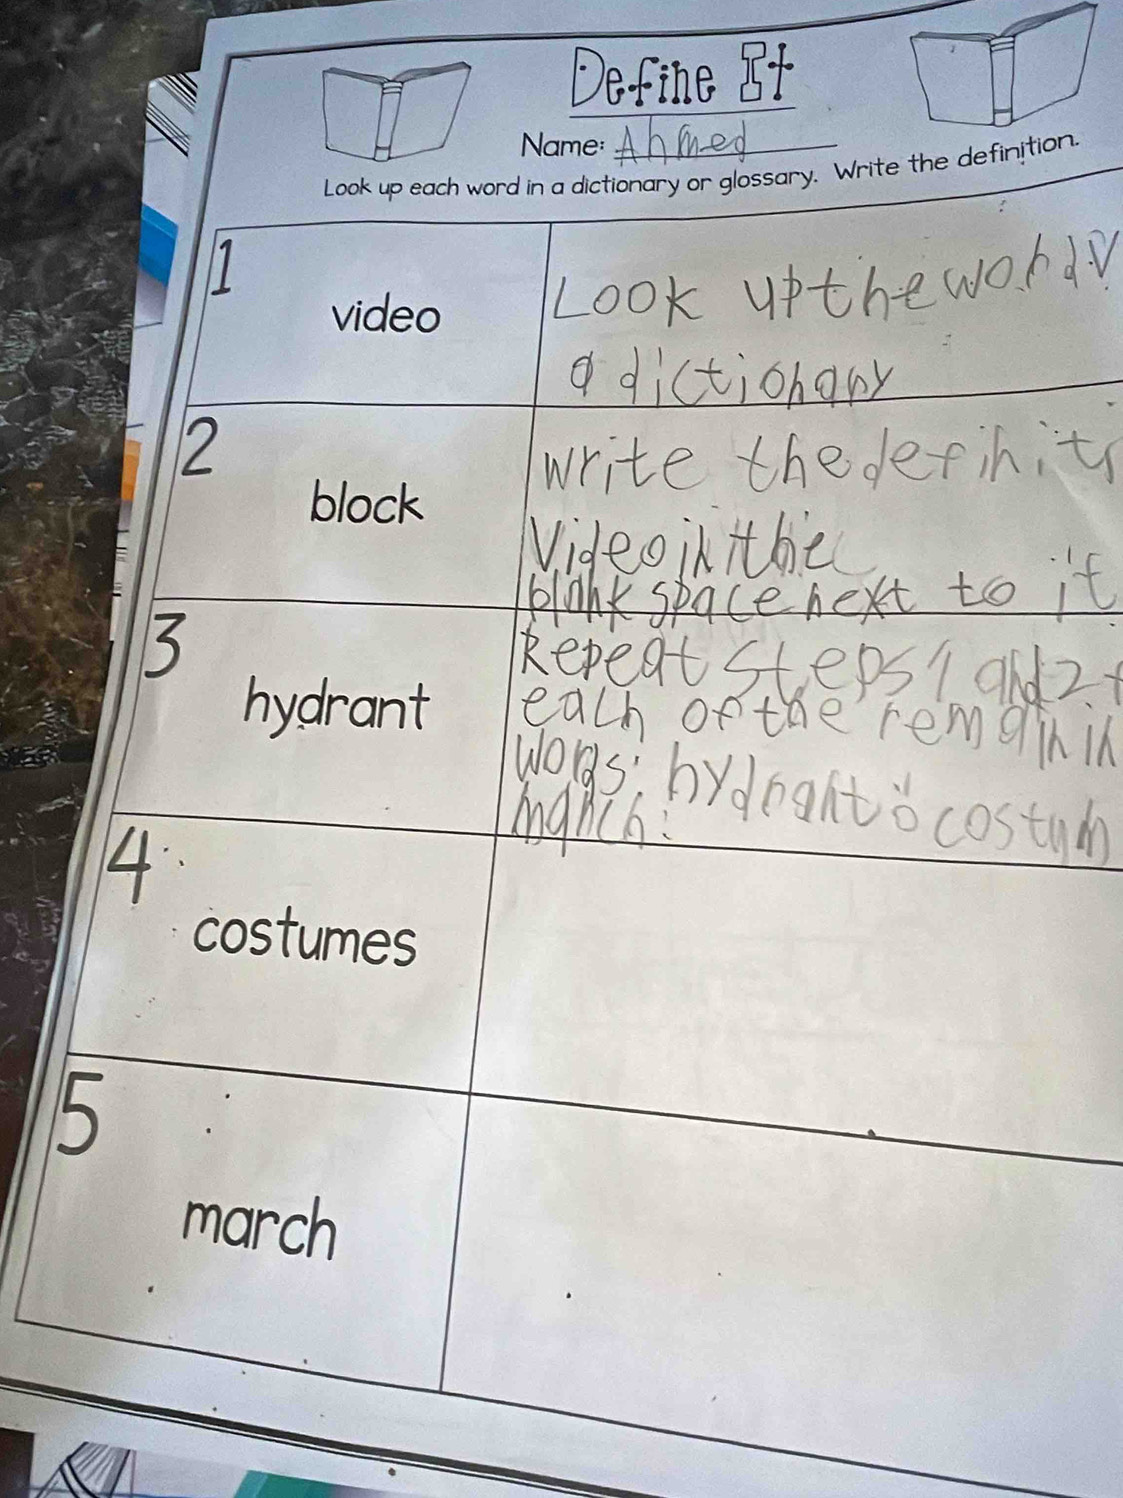 Define It
Name: Ahmed
Look up each word in a dictionary or glossary. Write the definition.
1
video
Look up the word V
a dictionary
2
block
write the definit
Video in the
blank space next to it
3
hydrant
Repeat steps 1 and 2 f
each of the remainin
words: hydrant costum
march.
4
costumes
5
march